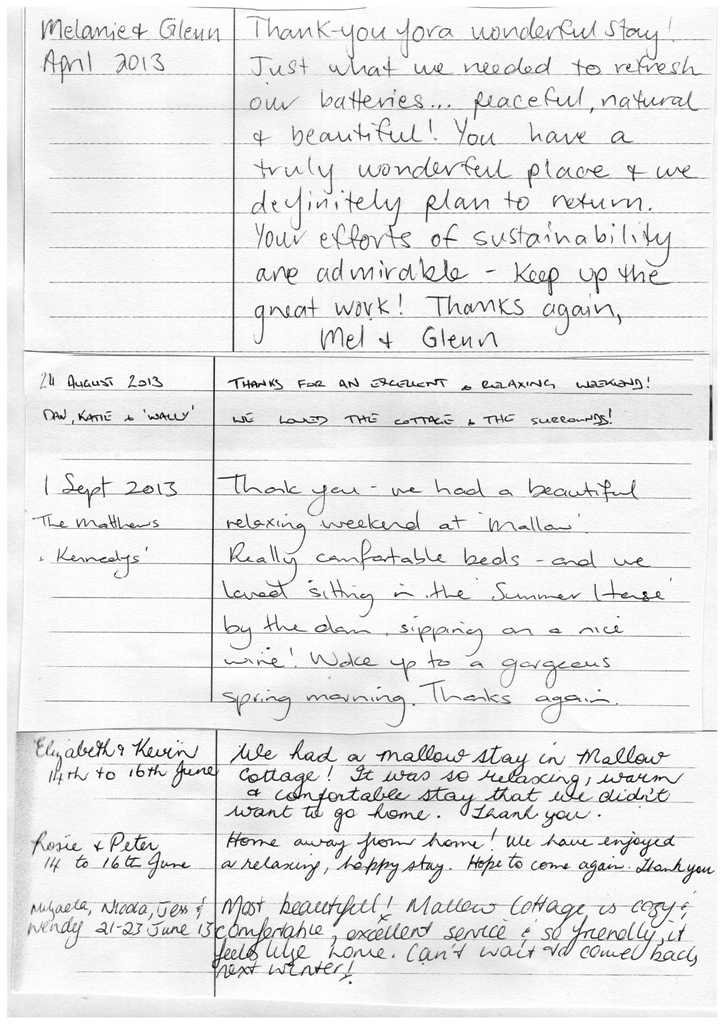 Melanie & Glenn Thank-you for a wonderful stay!
April 2013 Just what we needed to refresh
our batteries... peaceful, natural
& beautiful! You have a
truly wonderful place & we
definitely plan to return.
Your efforts of sustainability
are admirable - Keep up the
great work! Thanks again,
Mel & Glenn
24 AUGUST 2013 THANKS FOR AN EXCELLENT & RELAXING WEEKEND!
DAN, KATIE & 'WALLY' WE LOVED THE COTTAGE & THE SURROUNDS!
1 Sept 2013 Thank you - we had a beautiful
The Matthews relaxing weekend at 'Mallow'.
& Kennedys' Really comfortable beds - and we
loved sitting in the 'Summer House'
by the dam, sipping on a nice
wine! Woke up to a gorgeous
spring morning. Thanks again.
Elizabeth & Kevin We had a mallow stay in Mallow
14th to 16th June Cottage! It was so relaxing, warm
& comfortable stay that we didn't
want to go home. Thank you.
Rosie & Peter Home away from home! We have enjoyed
14 to 16th June a relaxing, happy stay. Hope to come again. Thank you
Nicola, Jess & Most beautiful! Mallow Cottage is cozy &
Wendy 21-23 June 13 comfortable, excellent service & so friendly, it
feels like home. Can't wait to come back
next winter!